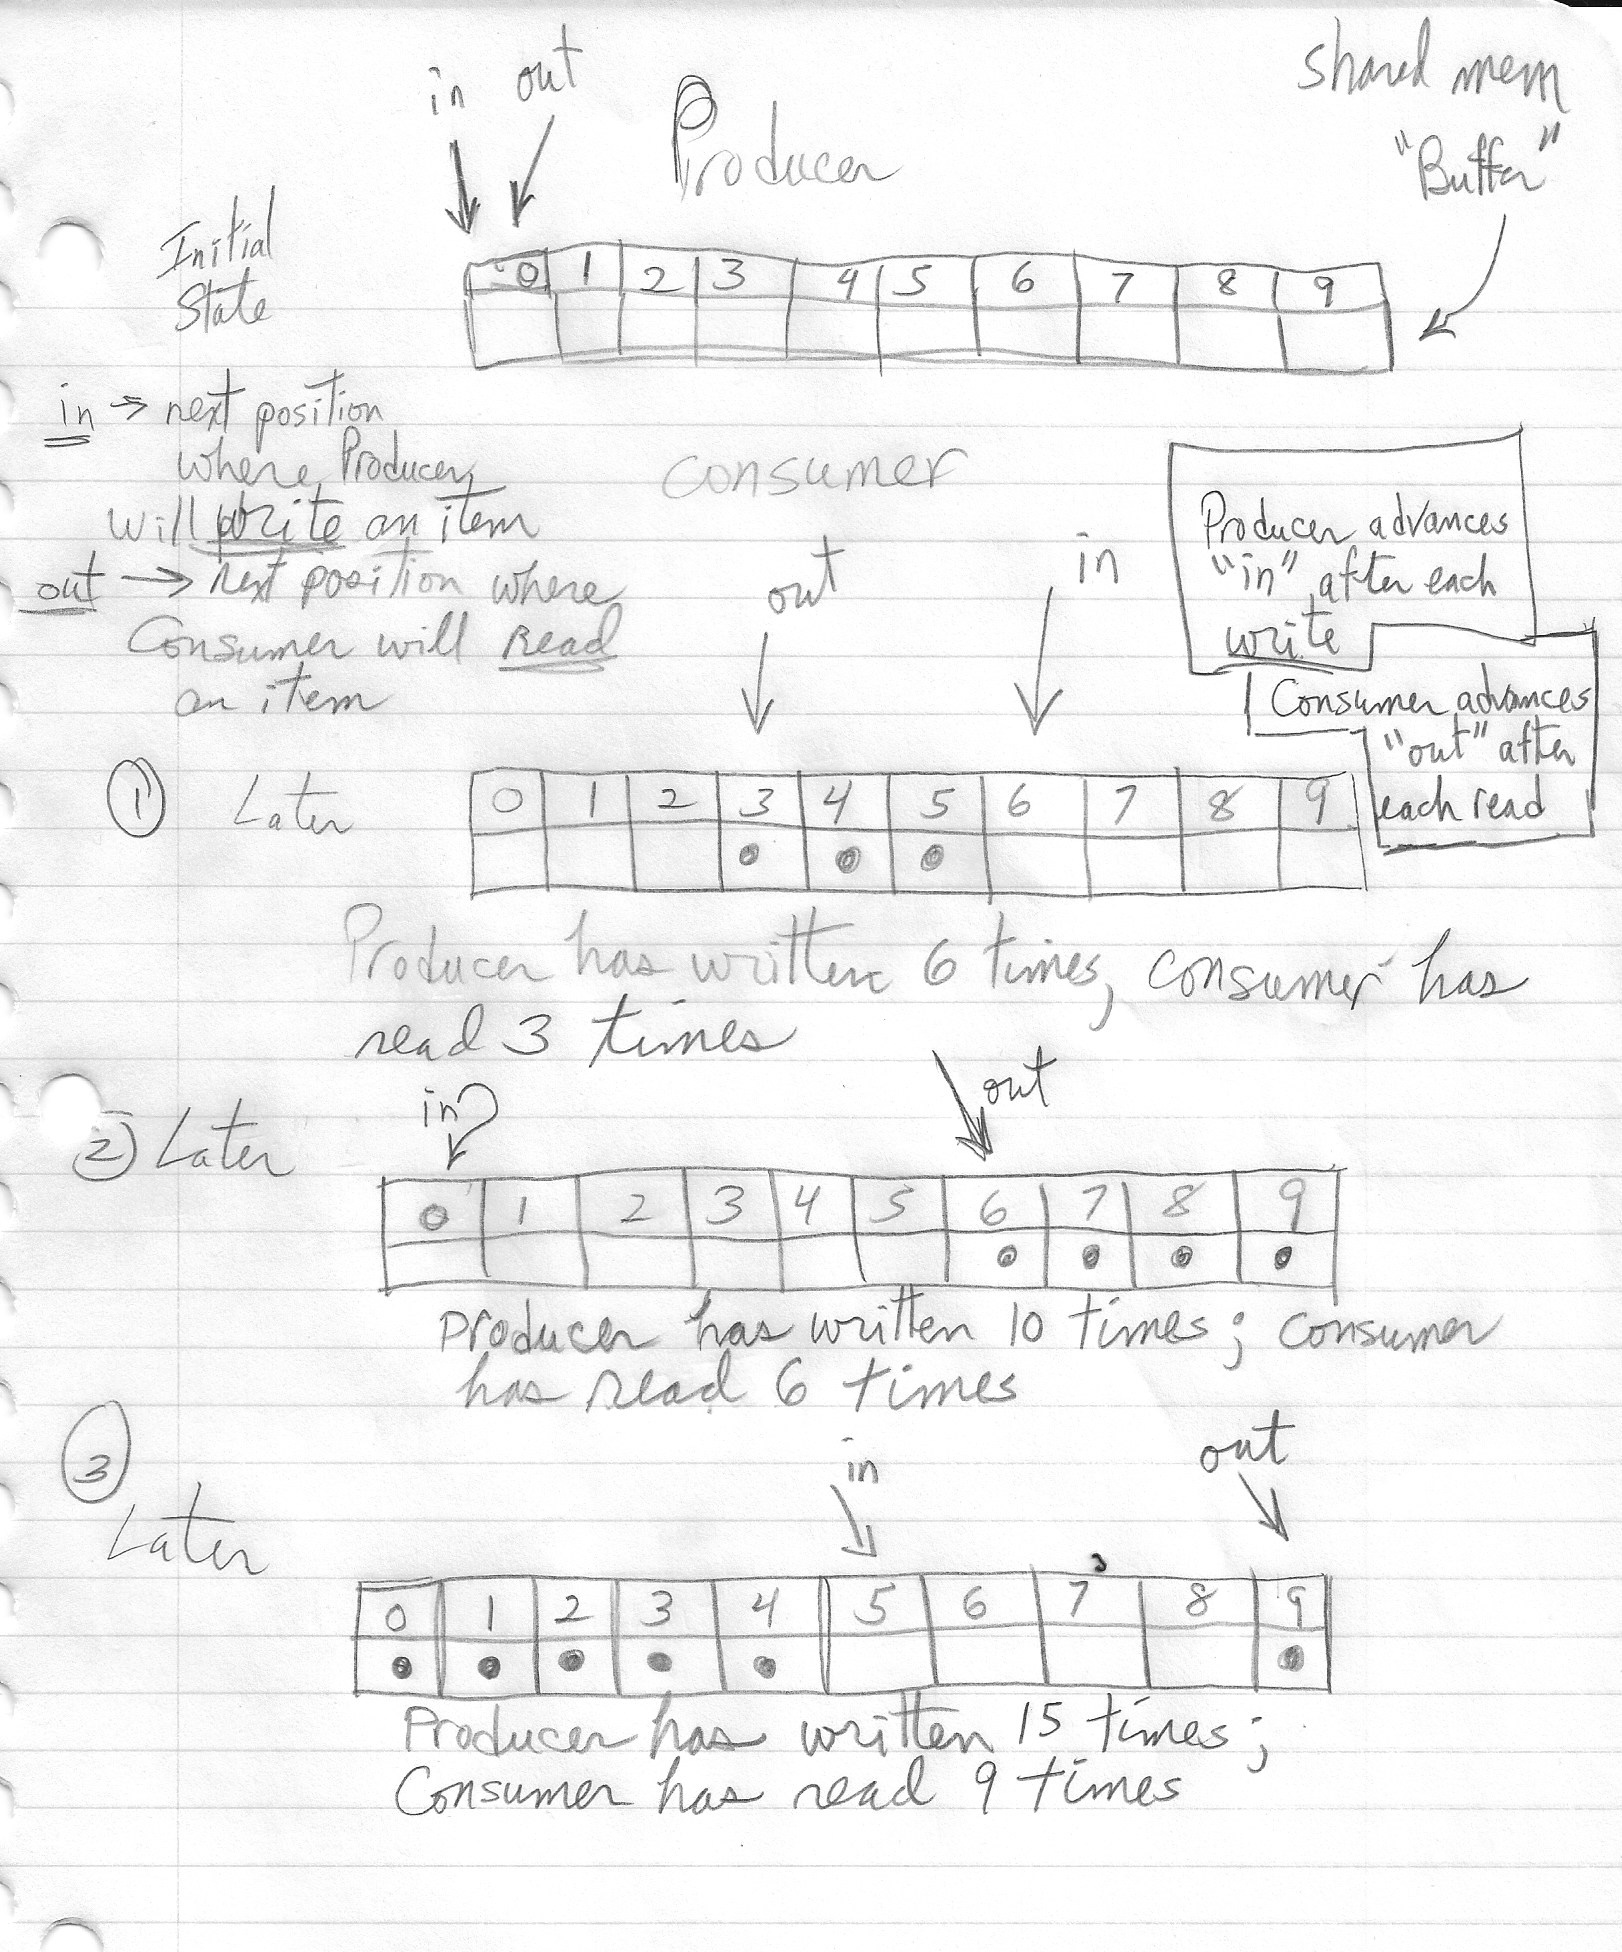 in out
Producer
shared mem
"Buffer"
Initial
State
0 1 2 3 4 5 6 7 8 9
in → next position
where Producer
will write an item
out → next position where
Consumer will Read
an item
consumer
out
in
Producer advances
"in" after each
write
Consumer advances
"out" after
each read
① Later
0 1 2 3 4 5 6 7 8 9
Producer has written 6 times, consumer has
read 3 times
② Later
in
out
0 1 2 3 4 5 6 7 8 9
Producer has written 10 times; consumer
has read 6 times
③
Later
in
out
0 1 2 3 4 5 6 7 8 9
Producer has written 15 times;
Consumer has read 9 times